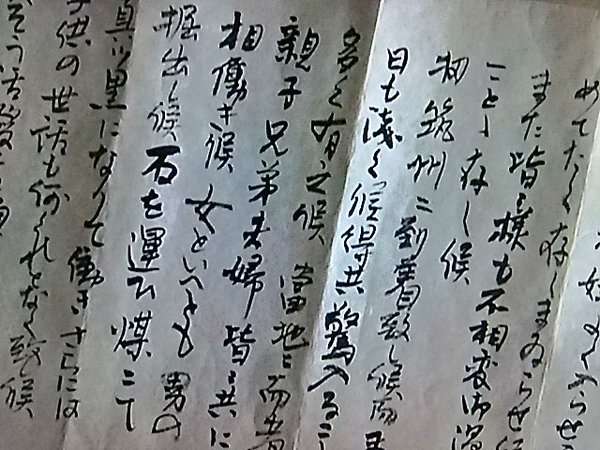 めてたく存しまゐらせ
また皆々様も不相変御
ことゝ存し候
初筑州ニ到着致し候而
日も浅く候得共驚入るこ
多く有之候 当地ニ而
親子兄弟夫婦皆々共に
相働き候 女といへとも男の
掘出し候石を運ひ煤ニて
真ッ黒になりて働きさらには
子供の世話も何くれとなく致候